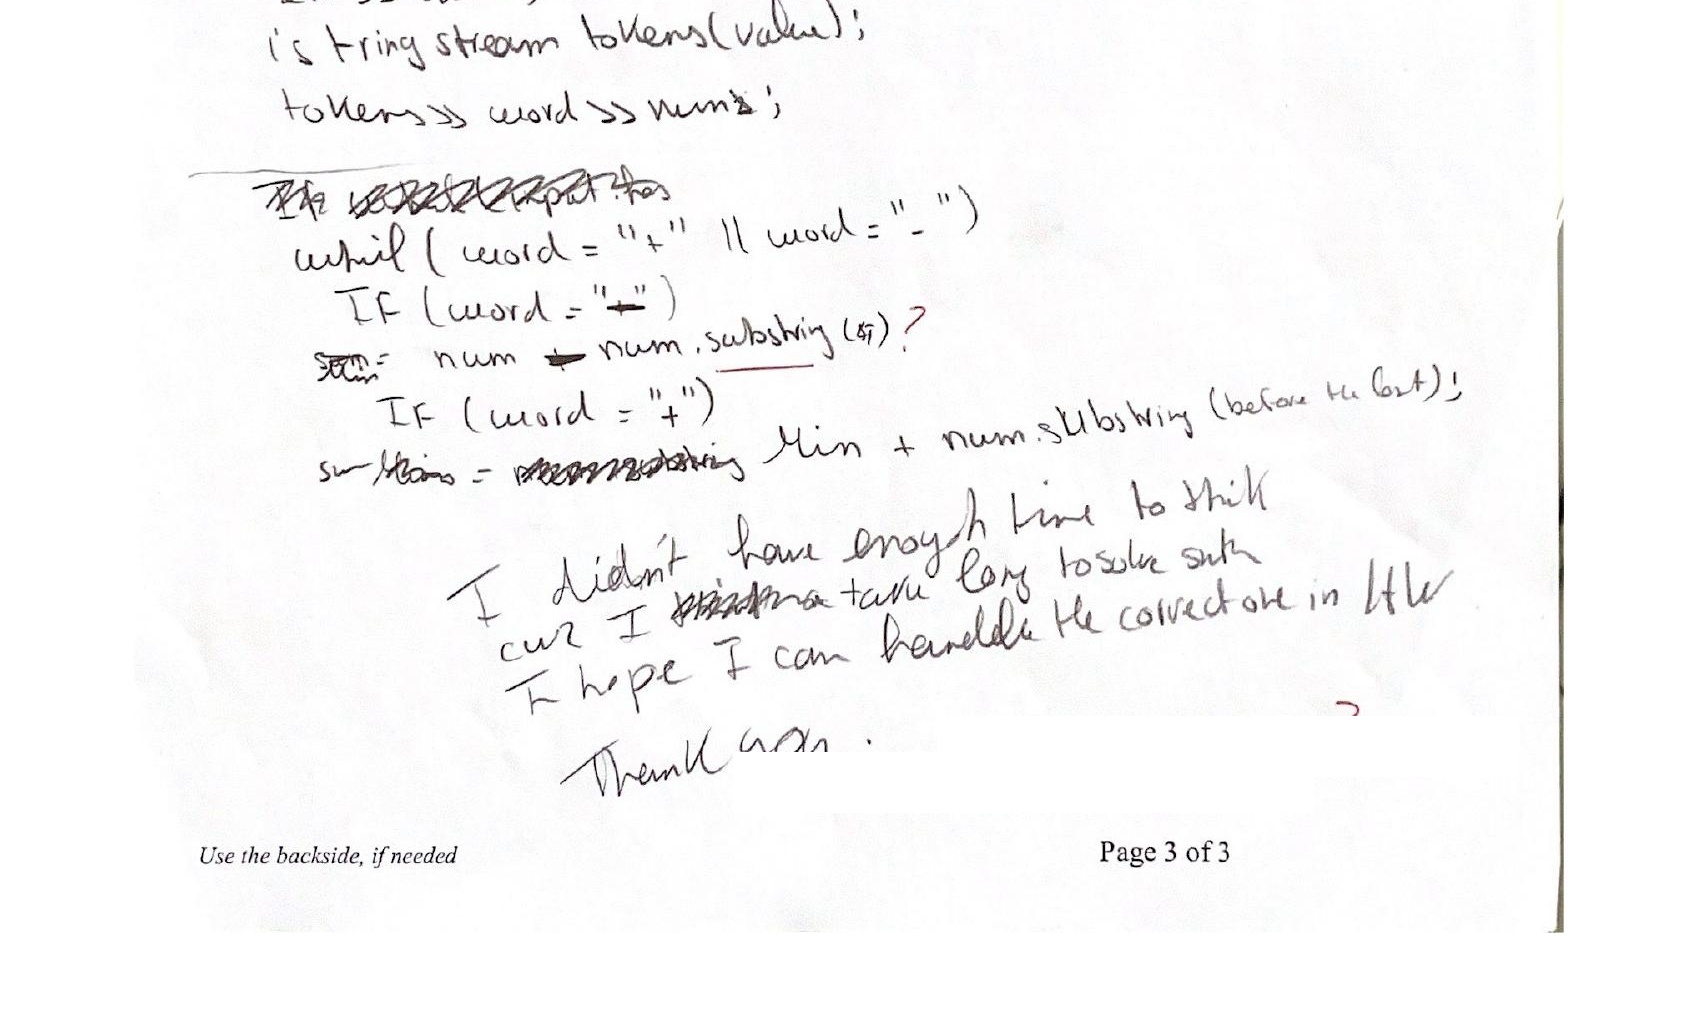 istringstream tokens(value);
tokens>> word >> num;
whil ( word = "+" || word = "-" )
IF (word = "-")
num - num.substring ( ) ?
IF (word = "+")
= Min + num.substring (before the last);
I didn't have enough time to thik
cuz I take long to solve
I hope I can handele the correct one in HW
Thank you.
Use the backside, if needed
Page 3 of 3